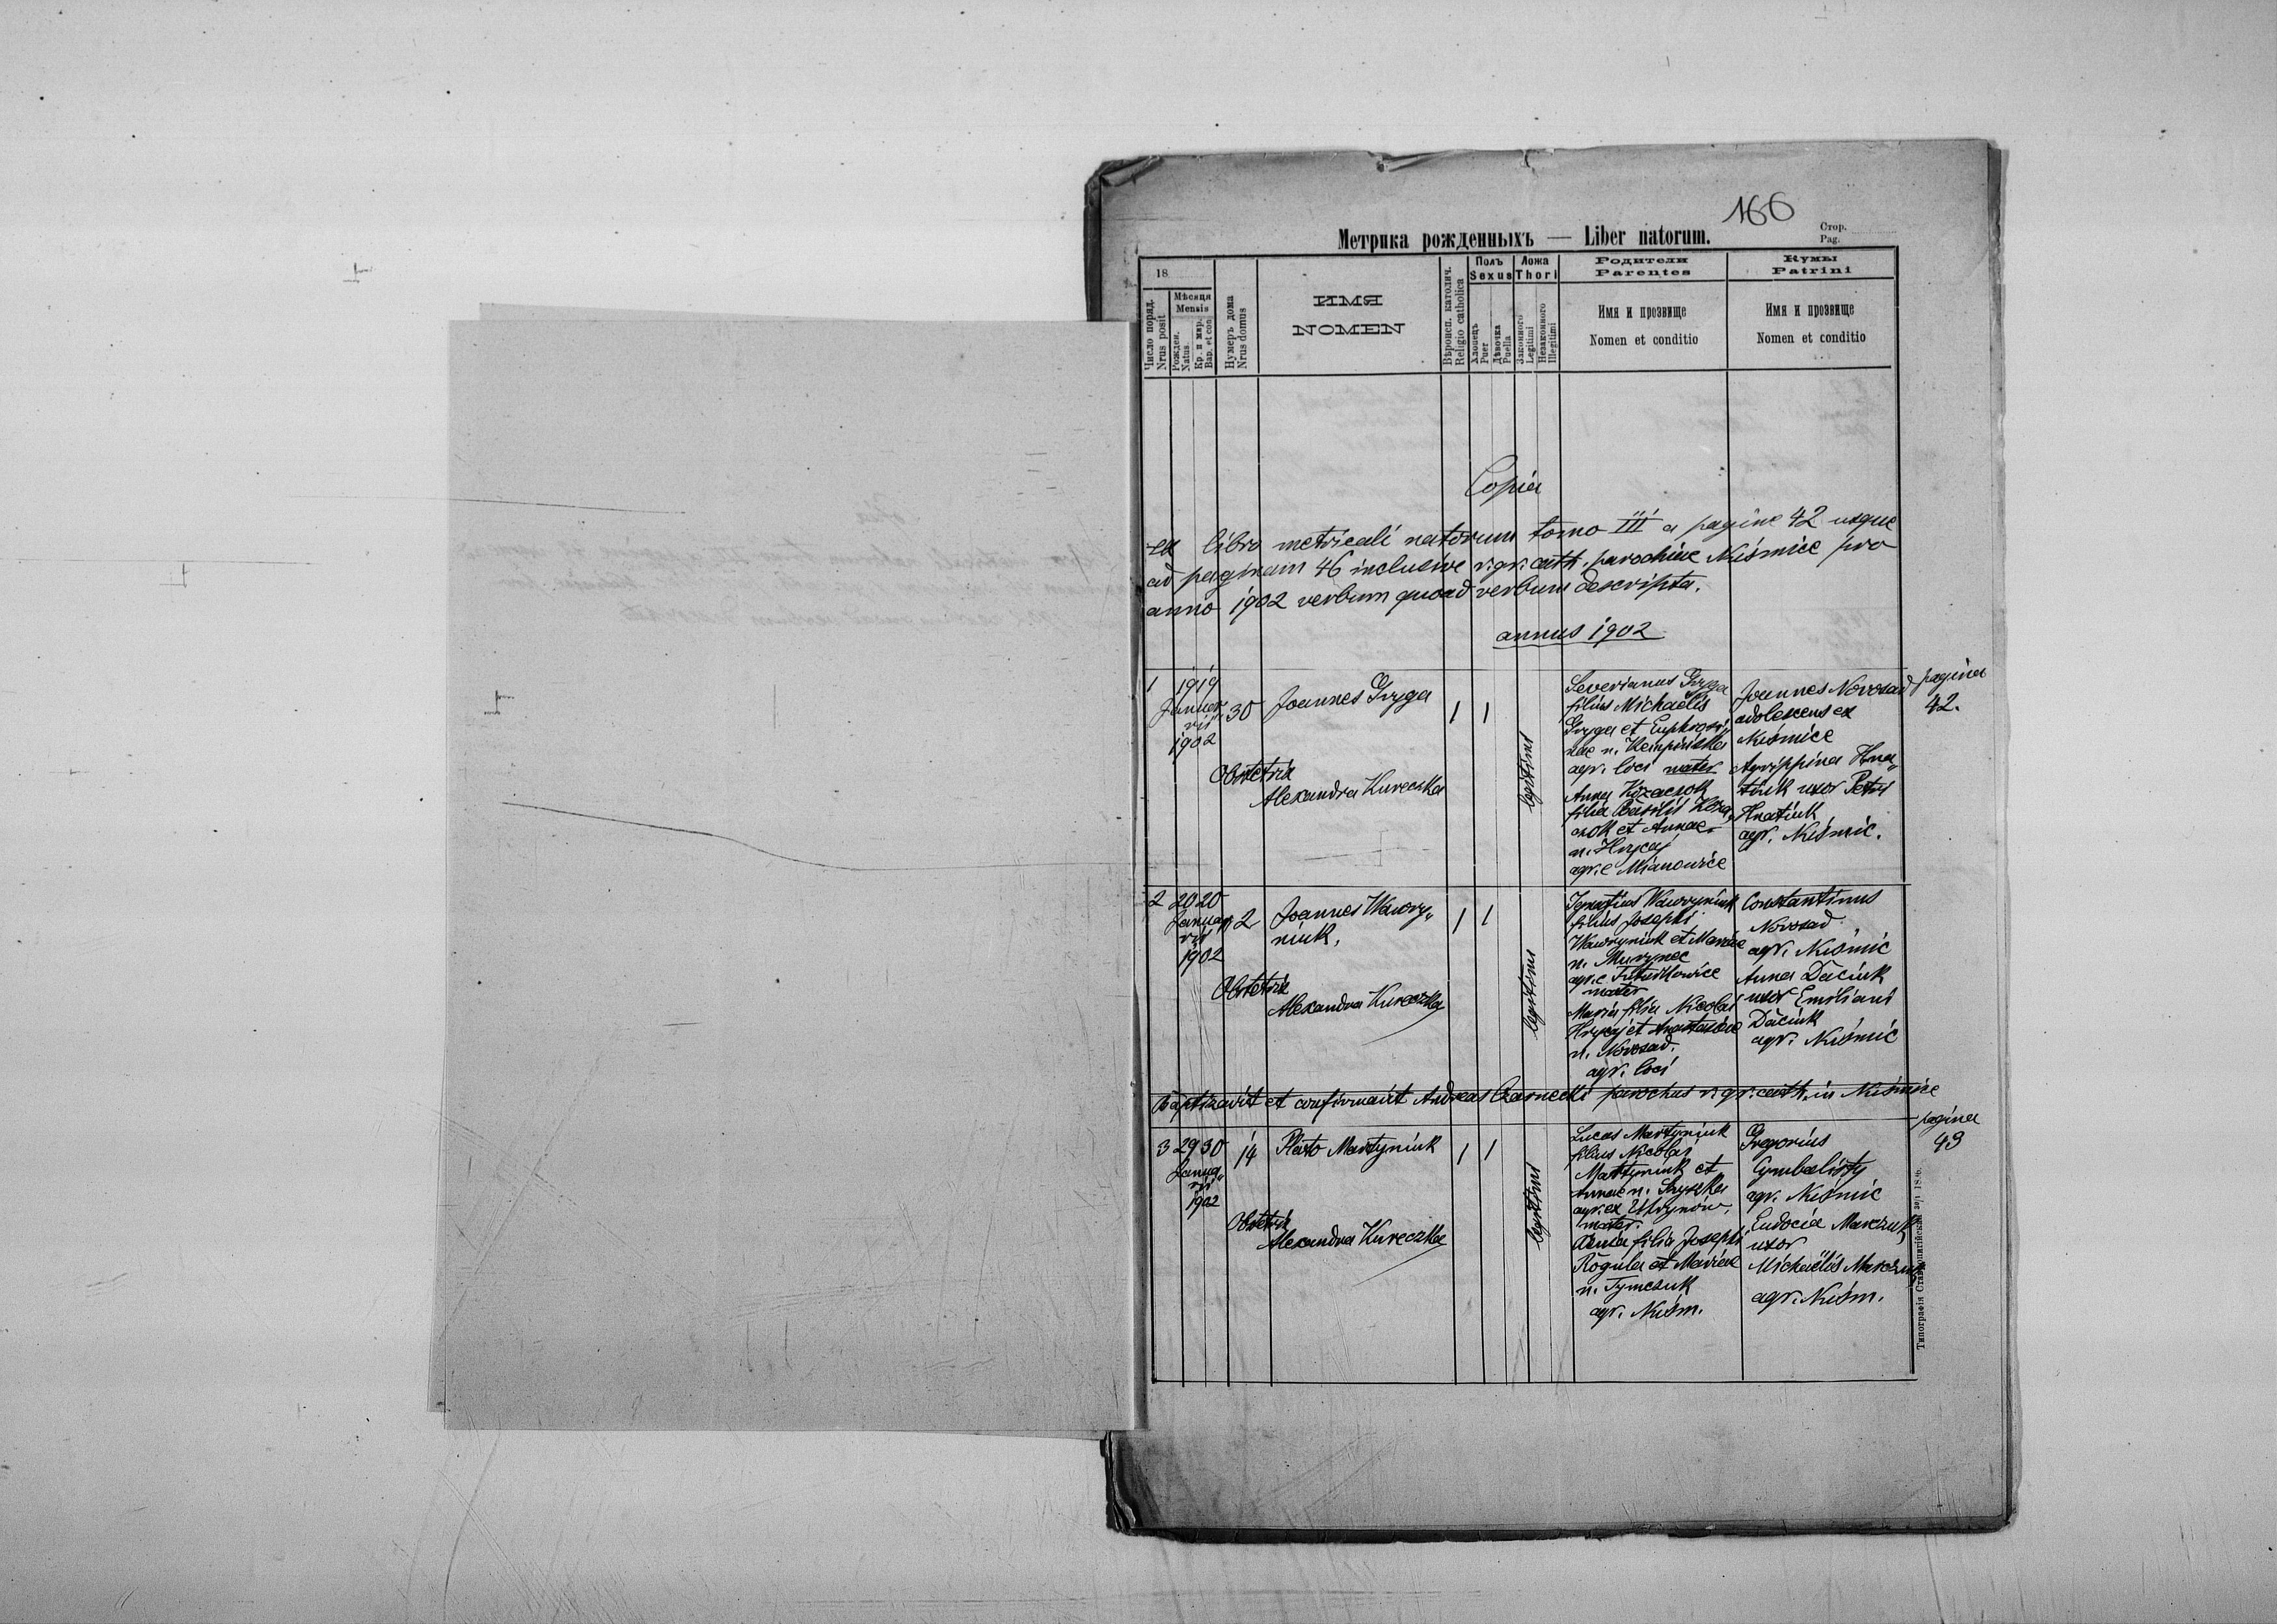 166
Метрика рожденныхъ — Liber natorum.
Стор.
Pag.
18
Число поряд.
Nrus posit
Мѣсяця
Mensis
Рожден.
Natus
Кр. и мир.
Bap. et con
Нумеръ дома
Nrus domus
ИМЯ
NOMEN
Вѣроисп. католич.
Religio catholica
Полъ
Sexus
Хлопецъ
Puer
Дѣвочка
Puella
Ложа
Thori
Законного
Legitimi
Незаконного
Illegitimi
Родители
Parentes
Имя и прозвище
Nomen et conditio
Кумы
Patrini
Имя и прозвище
Nomen et conditio
Copia
ex libro metricali natorum tomo III a pagine 42 usque
ad paginam 46 inclusive r. gr. cath. parochiae Niśmice pro
anno 1902 verbum quoad verbum descripta.
annus 1902
1
19 19
Janua„
rii
1902
30
Joannes Gryga
Obstetrix
Alexandra Kureczka
1
1
legitimi
Severianus Gryga
filius Michaelis
Gryga et Euphrosi„
nae n. Kempińska
agr. loci mater
Anna Kozaczok
filia Basilii Koza„
czok et Annae
n. Hrycaj
agr. e Mianowice
Joannes Novosad
adolescens ex
Niśmice
Agrippina Hna„
tiuk uxor Petri
Hnatiuk
agr. Niśmic.
pagina
42.
2
20 20
Janua„
rii
1902
2
Joannes Wawry„
niuk.
Obstetrix
Alexandra Kureczka
1
1
legitimi
Ignatius Wawryniuk
filius Josephi
Wawryniuk et Mariae
n. Murynec
agr. e
mater
Maria filia Nicolai
Hrycaj et Anastasiae
n. Novosad.
agr. loci
Constantinus
Novosad
agr. Niśmic
Anna Daciuk
uxor Emiliani
Daciuk
agr. Niśmic
Baptizavit et confirmavit Andreas Czarnecki parochus r. gr. cath. in Niśmice
3
29 30
Janua„
rii
1902
14
Plato Martyniuk
Obstetrix
Alexandra Kureczka
1
1
legitimi
Lucas Martyniuk
filius Nicolai
Martyniuk et
Annae n.
agr. ex Uhrynów.
mater.
Anna filia Josephi
Rogula et Mariae
n. Tymczuk
agr. Niśm.
Gregorius
Cymbalisty
agr. Niśmic
Eudocia Marczuk
uxor
Michaëlis Marczuk
agr. Niśm.
pagina
43